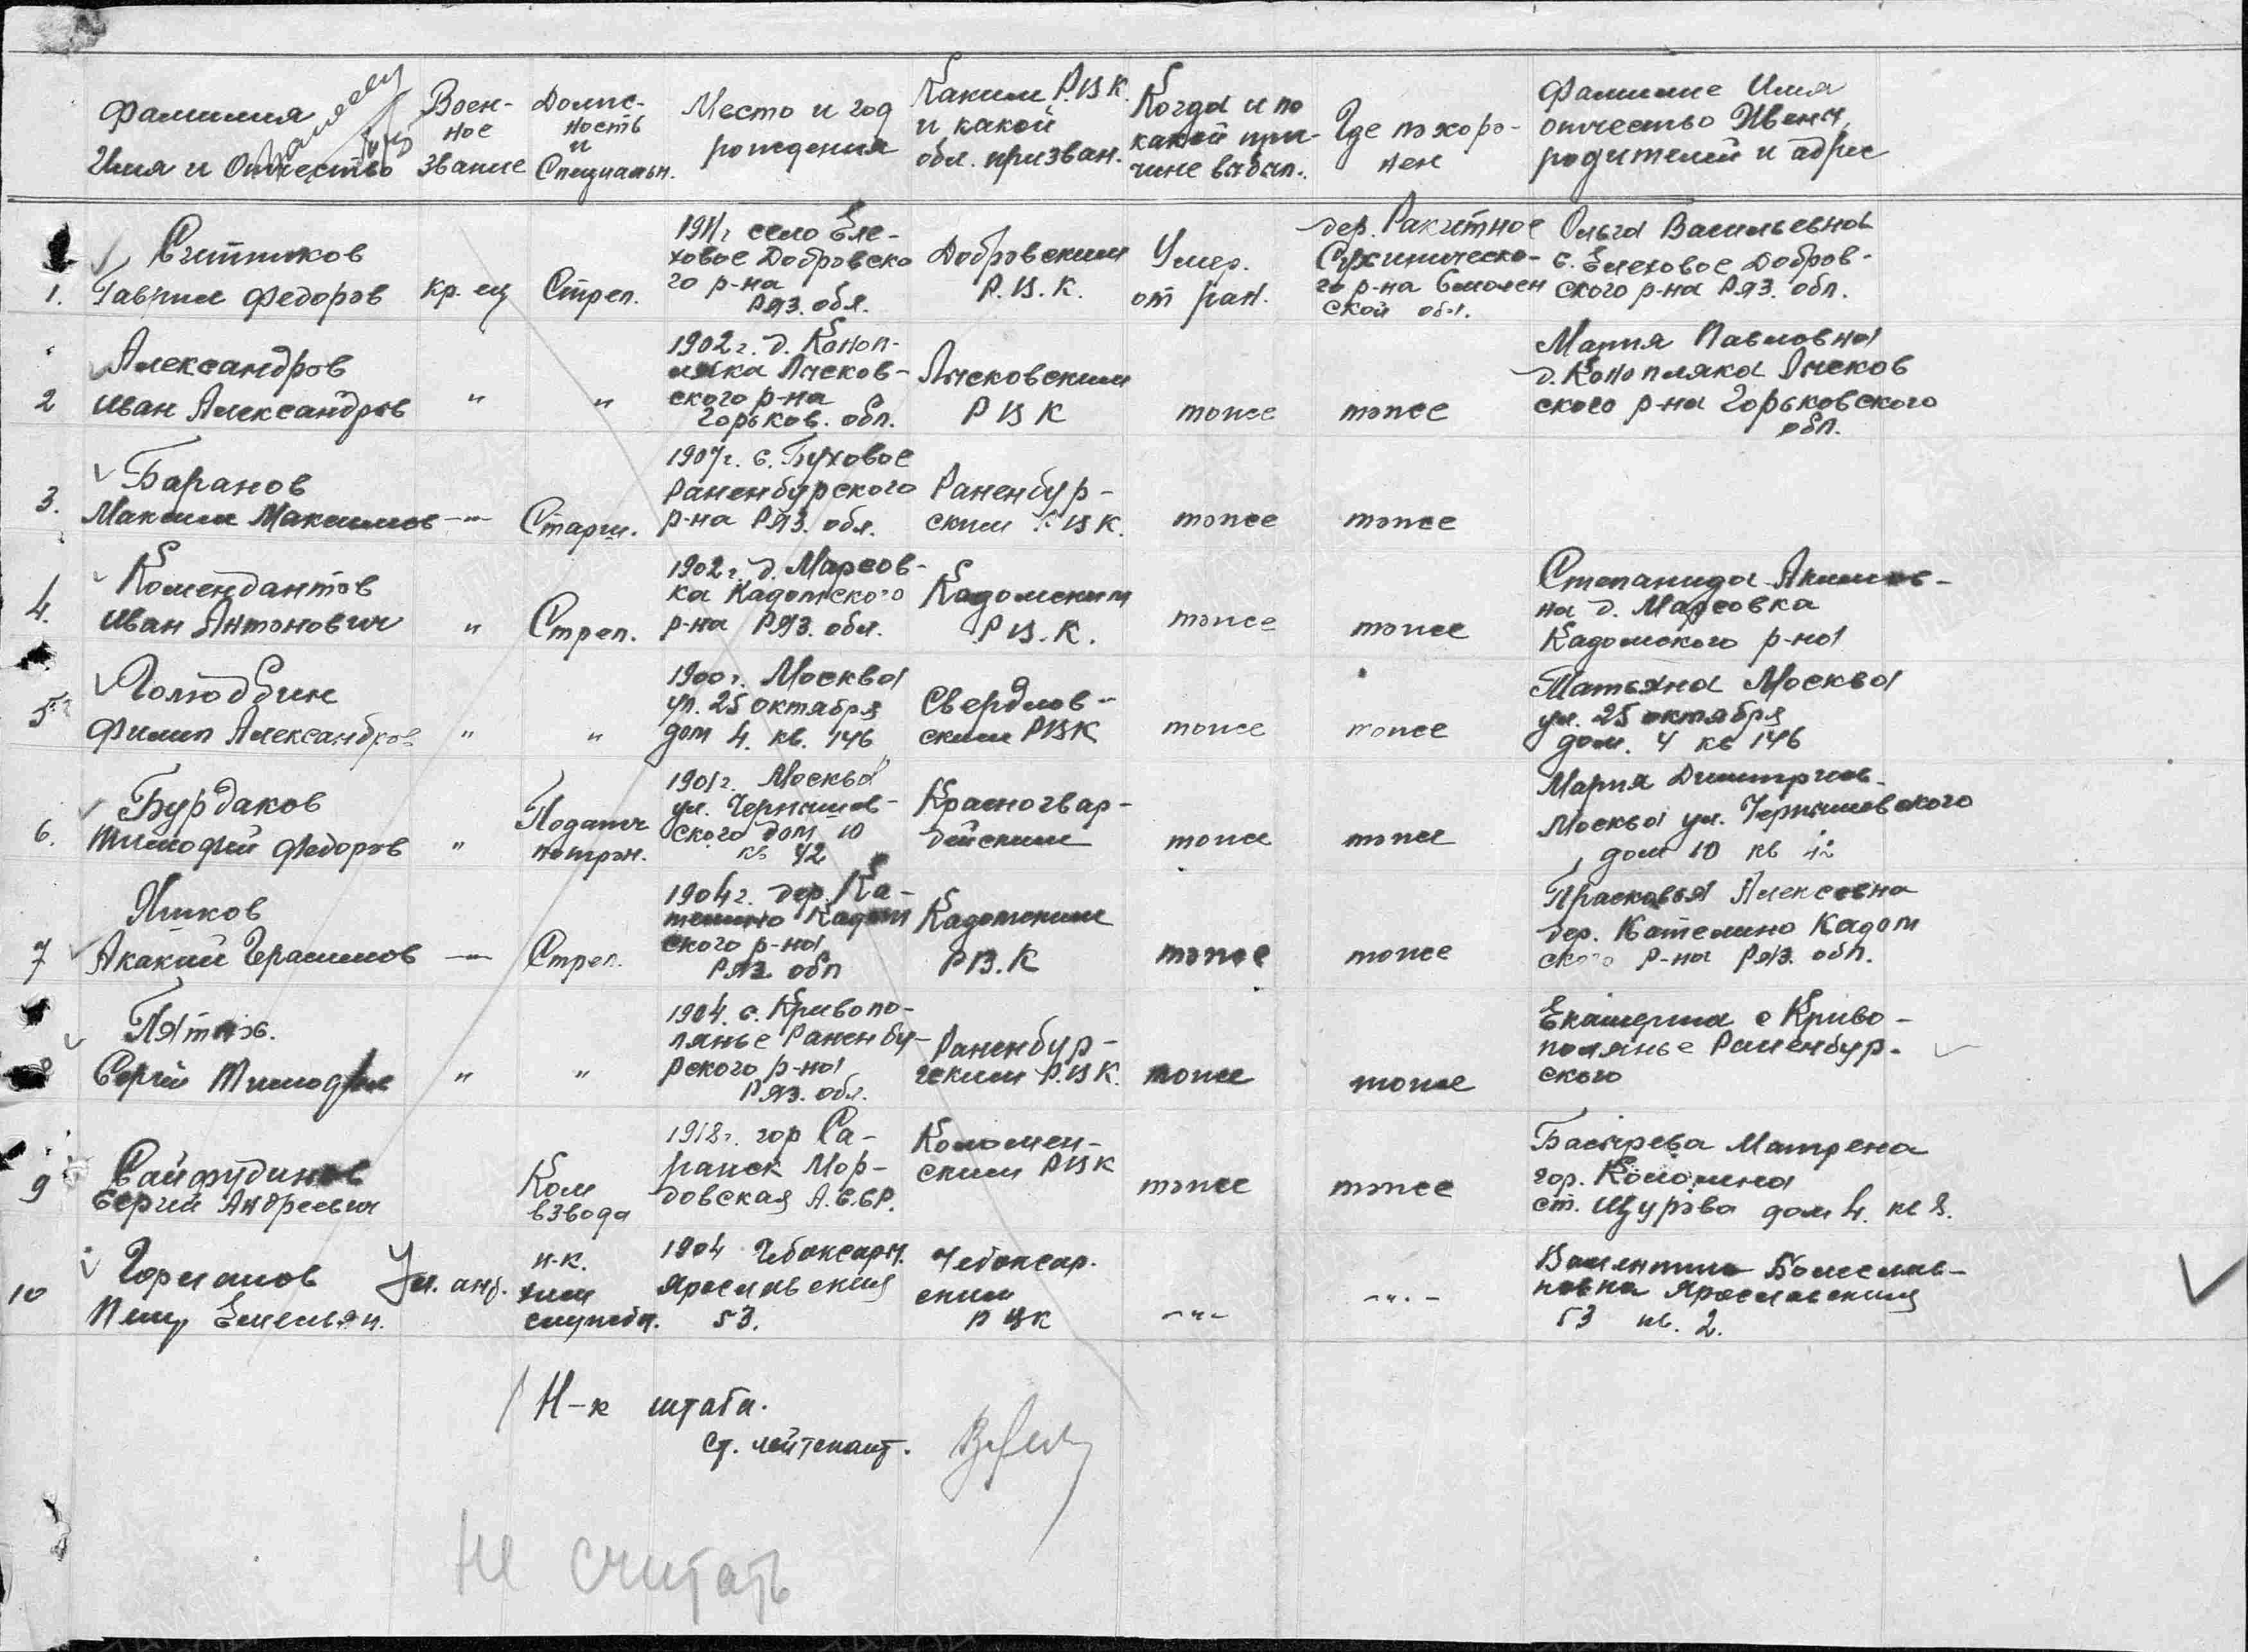 Фамилия
Имя и Отчество
Воен-
ное
звание
Долж-
ность
и
Специальн.
Место и год
рождения
Каким Р.В.К.
и какой
обл. призван.
Когда и по
какой при-
чине выбыл.
Где похоро-
нен
Фамилие Имя
отчество Жены,
родителей и адрес
1.
Ситников
Гаврил Федоров
кр. ец
Стрел.
1911г село Еле-
ховое Добровско
го р-на
Ряз. обл.
Добровским
Р.В.К.
Умер.
от ран.
дер. Ракитное
Сухиническо-
го р-на Смолен
ской обл.
Ольга Васильевна
с. Елеховое Добров-
ского р-на Ряз. обл.
2
Александров
Иван Александров
"
"
1902г. д. Коноп-
ляка Лысков-
ского р-на
Горьков. обл.
Лысковским
РВК
тоже
тоже
Мария Павловна
д. Конопляка Лысков
ского р-на Горьковского
обл.
3.
Баранов
Максим Максимов
-"-
Старш.
1907г. с. Буховое
Раненбурского
р-на Ряз. обл.
Раненбур-
ским РВК.
тоже
тоже
4.
Комендантов
Иван Антонович
"
Стрел.
1902г. д. Марсов-
ка Кадомского
р-на Ряз. обл.
Кадомским
Р.В.К.
тоже
тоже
Степанида Акимов-
на д. Марсовка
Кадомского р-на
5
Голюдбин
Филип Александров
"
"
1900г. Москва
ул. 25 октября
дом 4. кв. 146
Свердлов-
ским РВК
тоже
тоже
Татьяна Москва
ул. 25 октября
дом. 4 кв 146
6.
Бурдаков
Тимофей Федоров
"
Податч
патрон.
1901г. Москва
ул. Чернышев-
ского дом 10
кв 42
Красногвар-
дейским
тоже
тоже
Мария Димитриев-
Москва ул. Чернышевского
дом 10 кв 42
7
Яшков
Акакий Герасимов
-"-
Стрел.
1904г. дер. Ка-
телино Кадом
ского р-на
Ряз. обл
Кадомским
РВ.К
тоже
тоже
Прасковья Алексевна
дер. Кателино Кадом
ского р-на Ряз. обл.
8
Пятков.
Сергей Тимофеев
"
"
1904. с. Кривопо-
лянье Раненбу-
рского р-на
Ряз. обл.
Раненбур-
гским Р.В.К.
тоже
тоже
Екатерина с Криво-
полянье Раненбур-
ского
9
Сайфудинов
Сергей Андреевич
Ком
взвода
1918г. гор Са-
ранск Мор-
довская А.С.СР.
Коломен-
ским РВК
тоже
тоже
Матрена
гор. Коломна
ст. Щурово дом 4. кв 8.
10
Горланов
Петр Емельян.
н-к.
хим
службы.
1904 Чебоксары.
Ярославский
53.
Чебоксар.
ским
РВК
-"-
-"-
Валентина Болеслав-
новна Ярославский
53 кв. 2.
Н-к штаба.
ст. лейтенант.
Не считать